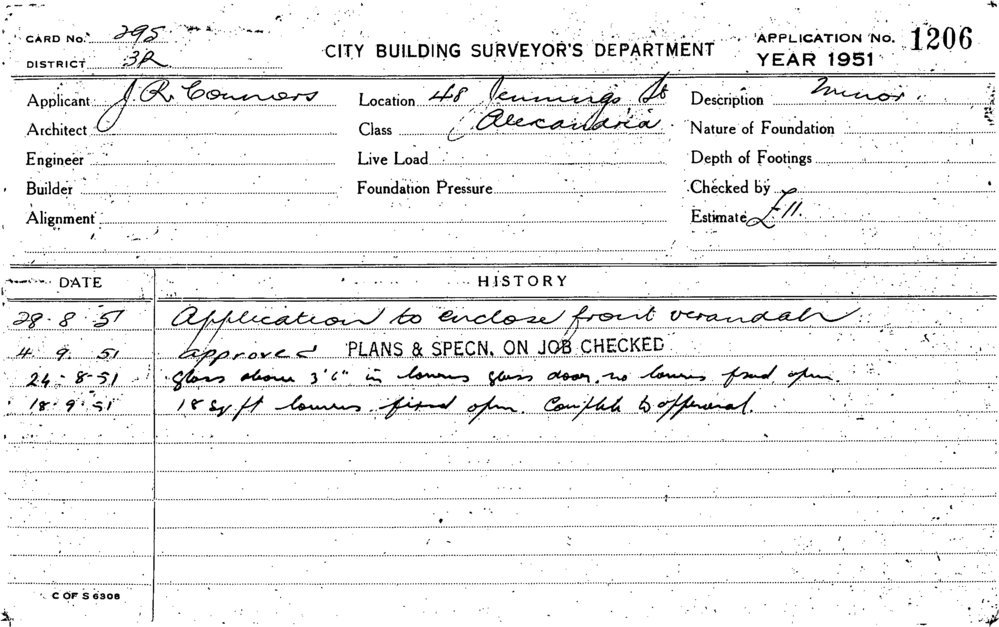 CARD No. 295
DISTRICT 3R
CITY BUILDING SURVEYOR'S DEPARTMENT
APPLICATION No. 1206
YEAR 1951
Applicant J. R. Connors Location 48 Jennings St Description Minor.
Architect Class Alexandria. Nature of Foundation
Engineer Live Load Depth of Footings
Builder Foundation Pressure Checked by
Alignment Estimate £11.
DATE HISTORY
28.8.51 Application to enclose front verandah
4.9.51 approved PLANS & SPECN. ON JOB CHECKED
24-8-51 glass above 3'6" in louvres glass door. no louvres fixed open.
18.9.51 18 sq ft louvres fixed open. Complete to approval.
C OF S 6308